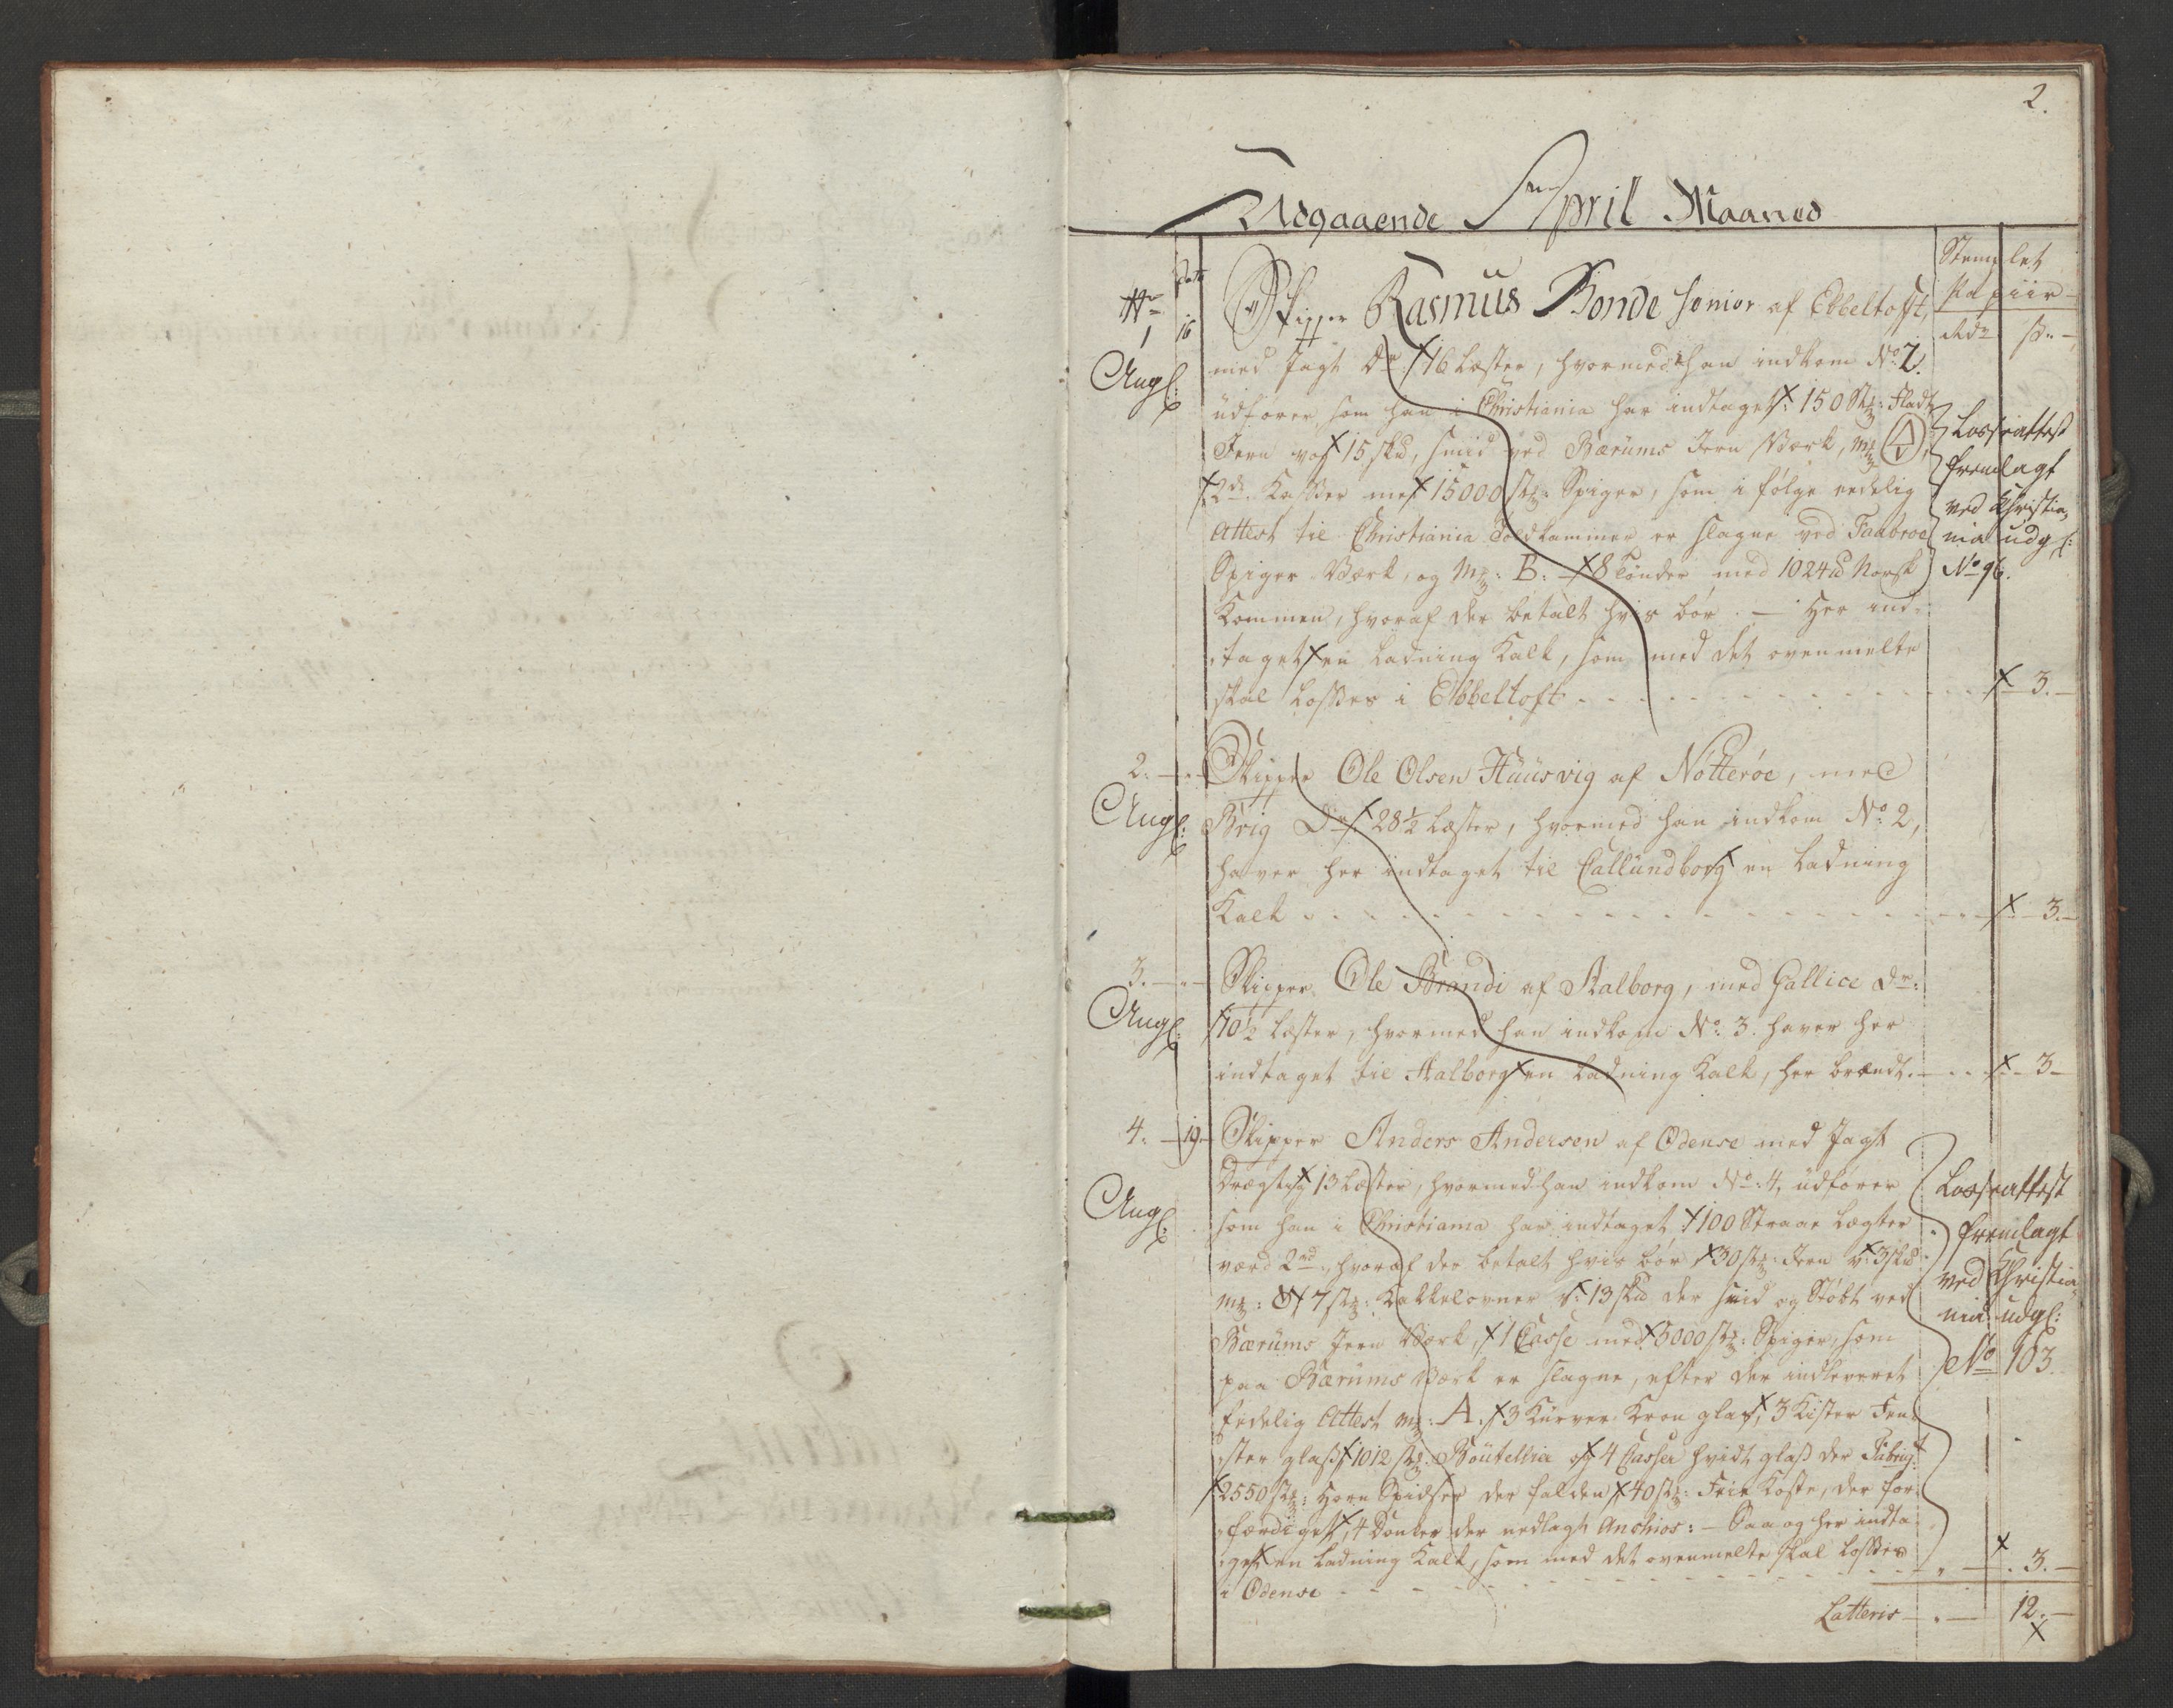 2.
Udgaaende April Maaned
Stemplet
Papiir
Nr
Dato
Rdr ß
1
16
Skipper Rasmus Bonde Senior af Ebbeltoft,
Angl:
med Jagt Dr: 16 Læster, hvormed han indkom No: 7.
udfører som han i Christiania har indtaget: 150 Stz: Fladt
Jern vog 15 skd, smid ved Bærums Jern Værk, mz
2de Kasser med 15000 stz: Spiger, som i følge eedelig
Attest til Christiania Toldkammer er slagne ved Faabroe
Spiger-Værk, og Mz: B: 8 tønder med 1024 ℔ Norsk
Kommen, hvoraf der betalt hvis bør. — Her ind-
taget en Ladning Kalk, som med det ovenmelte
skal losses i Ebbeltoft
3.
Losseattest
fremlagt
ved Christia-
nia udg:
No 96.
2.
Skipper Ole Olsen Huusvig af Nøtterøe, med
Angl:
Brig Dr: 28½ Læster, hvormed han indkom No: 2,
haver her indtaget til Callundborg en Ladning
Kalk
3.
3.
Skipper Ole Brandi af Aalborg, med Gallice Dr:
Angl:
10½ Læster, hvormed han indkom No: 3. haver her
indtaget til Aalborg en Ladning Kalk, her brændt.
3
4.
19
Skipper Anders Andersen af Odense med Jagt
Drægtig 13 Læster, hvormed han indkom No: 4, udfører
Angl:
som han i Christiania har indtaget 100 Straae Lægter
værd 2rd, hvoraf der betalt hvis bør 30 stz: Jern v: 3 skd
mz: 7 stz: Kakkelovner v: 13 skd der smid og Støbt ved
Bærums Jern Værk, 1 Casse med 5000 stz: Spiger, som
paa Bærums Værk er slagne, efter der indleveret
Eedelig Attest mz: A. 3 Kurver Kron glas, 3 Kister Fen-
ster glas 1012 stz: Boutellier og 4 Casser hvidt glas der Fabriq:
2550 stz: Horn Spidser der falden 40 stz: Feie Koste, der for-
færdiget, 4 Dunker der nedlagt Anschios: — Saa og her indta-
get en Ladning Kalk, som med det ovenmelte skal losses
i Odense
3.
Losseattest
fremlagt
ved Christia-
nia udgl:
No 103.
Latteris 12.